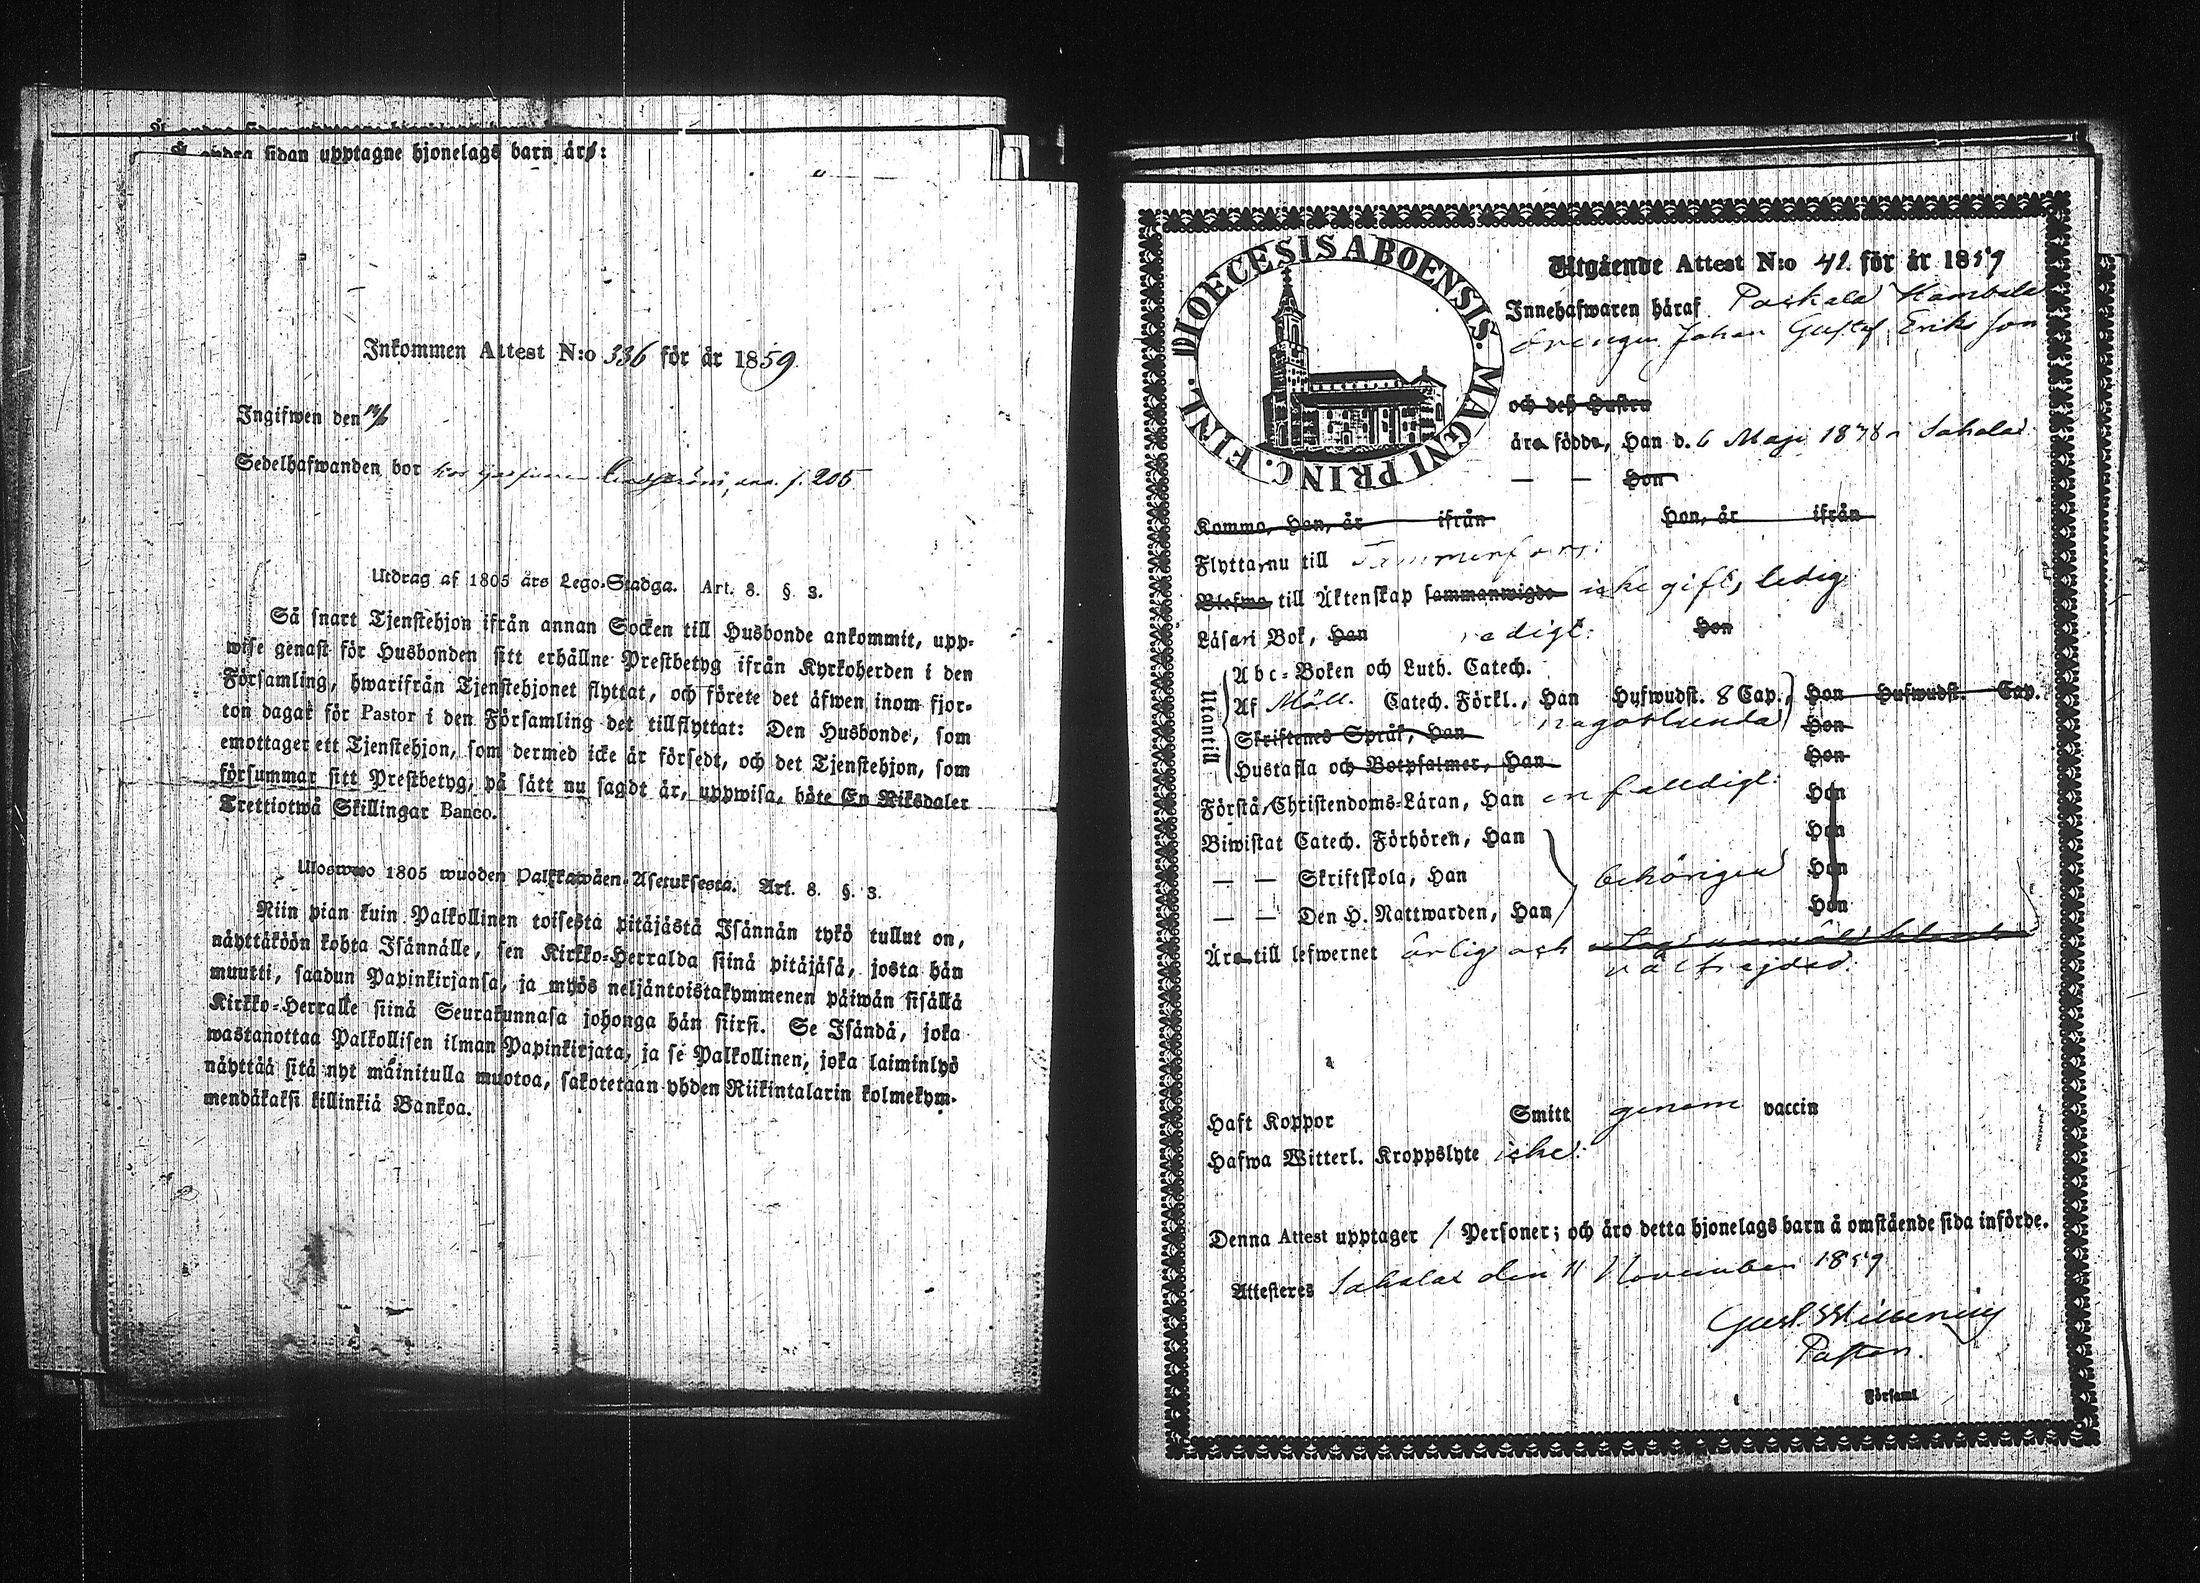 Å andra sidan upptagne hjonelags barn äro:
Inkommen Attest N:o 336 för år 1859
Ingifwen den
Sedelhafwanden bor hos f. 205
Utdrag af 1805 års Lego-Stadga. Art. 8. § 3.
Så snart Tjenstehjon ifrån annan Socken till Husbonde ankommit, upp-
wise genast för Husbonden sitt erhållne Prestbetyg ifrån Kyrkoherden i den
Församling, hwarifrån Tjenstehjonet flyttat, och förete det äfwen inom fjor-
ton dagar för Pastor i den Församling det tillflyttat: Den Husbonde, som
emottager ett Tjenstehjon, som dermed icke är försedt, och det Tjenstehjon, som
försummar sitt Prestbetyg, på sätt nu sagdt är, uppwisa, böte En Riksdaler
Trettiotwå Skillingar Banco.
Uloswwo 1805 wuoden Palkkawäen-Asetuksesta. Art. 8. §. 3.
Niin pian kuin Palkollinen toisesta pitäjästä Isännän tykö tullut on,
näyttäköön kohta Isännälle, sen Kirkko-Herralda siinä pitäjäsä, josta hän
muutti, saadun Papinkirjansa, ja myös neljäntoistakymmenen päiwän sisällä
Kirkko-Herralle siinä Seurakunnasa johonga hän siirsi. Se Isändä, joka
wastanottaa Palkollisen ilman Papinkirjata, ja se Palkollinen, joka laiminlyö
näyttää sitä nyt mainitulla muotoa, sakotetaan yhden Riikintalarin kolmekym-
mendäkaksi killinkiä Bankoa.
DIOECESIS ABOENSIS. MAGNI PRINC. FINL.
Utgående Attest N:o 42 för år 1859
Innehafwaren häraf
drengen Johan Gustaf Eriksson
och dess Hustru
äro födda, Han d. 6 Maji 1838 i Sahalax
— — Hon
Komma, Han, år ifrån Hon, år ifrån
Flytta nu till Tammerfors.
Blefwo till Äktenskap sammanwigde icke gift, ledig
Läsa i Bok, Han redigt. Hon
Utantill
Abc-Boken och Luth. Catech.
Af Möll. Catech. Förkl., Han Hufwudst. 8 Cap., Hon Hufwudst. Cap.
Skriftenes Språk, Han någorlunda Hon
Hustafla och Botpsalmer, Han Hon
Förstå Christendoms-Läran, Han enfalldigt. Hon
Biwistat Catech. Förhören, Han Hon
— — Skriftskola, Han behörigen Hon
— — Den H. Nattwarden, Han Hon
Äro till lefwernet ärlig och
välfrejdad.
Haft Koppor Smitt genom vaccin
Hafwa Witterl. Kroppslyte icke.
Denna Attest upptager 1 Personer; och äro detta hjonelags barn å omstående sida införde.
Attesteres Sahalax den 11 November 1859
Pastor.
i Församl.